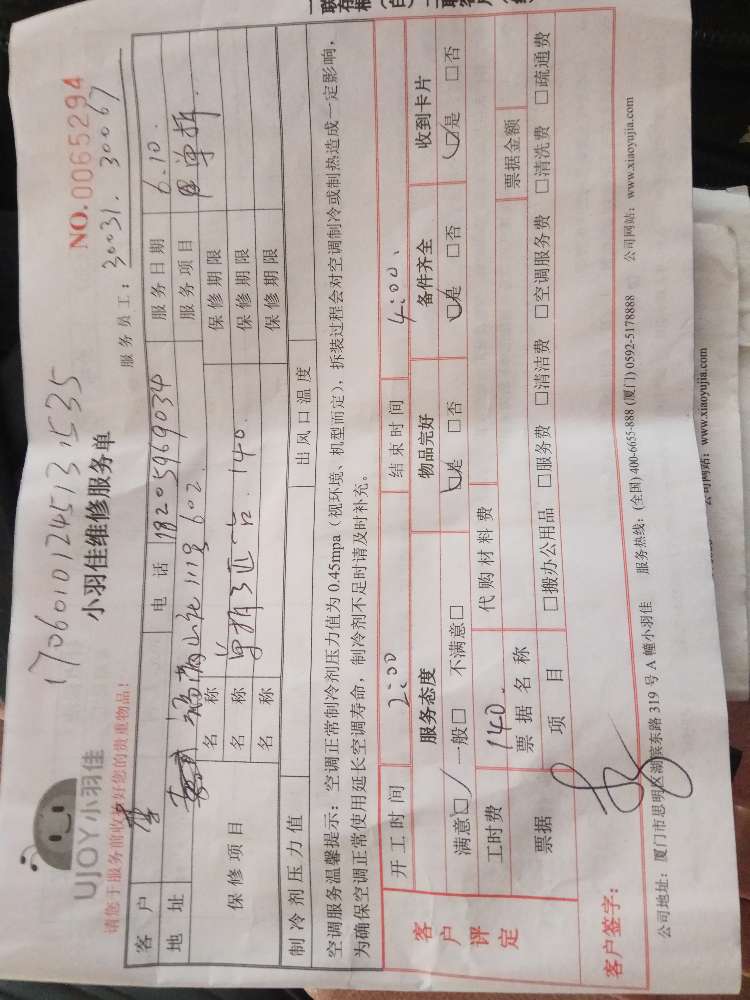 联存根（白） 二联客户
1706010124513535
UJOY小羽佳
小羽佳维修服务单
NO.0065294
请您于服务前收拾好您的贵重物品！
服务员工： 30031. 30067
客户 电话 18205969034 服务日期 6.10.
地址 111号602. 服务项目 单拆.
保修项目 名称 保修期限
名称 单拆3匹 140. 保修期限
名称 保修期限
制冷剂压力值 出风口温度
空调服务温馨提示：空调正常制冷剂压力值为0.45mpa（视环境、机型而定），拆装过程会对空调制冷或制热造成一定影响，
为确保空调正常使用延长空调寿命，制冷剂不足时请及时补充。
客户评定
开工时间 2:00 结束时间 4:00.
服务态度 物品完好 备件齐全 收到卡片
满意☑ 一般□ 不满意□ ☑是 □否 ☑是 □否 ☑是 □否
工时费 140. 代购材料费
票据 票据名称 票据金额
项目 □搬办公用品 □服务费 □清洁费 □空调服务费 □清洗费 □疏通费
客户签字：
公司地址：厦门市思明区湖滨东路319号A幢小羽佳 服务热线：(全国)400-6655-888 (厦门)0592-5178888 公司网站：www.xiaoyujia.com
公司网站：www.xiaoyujia.com